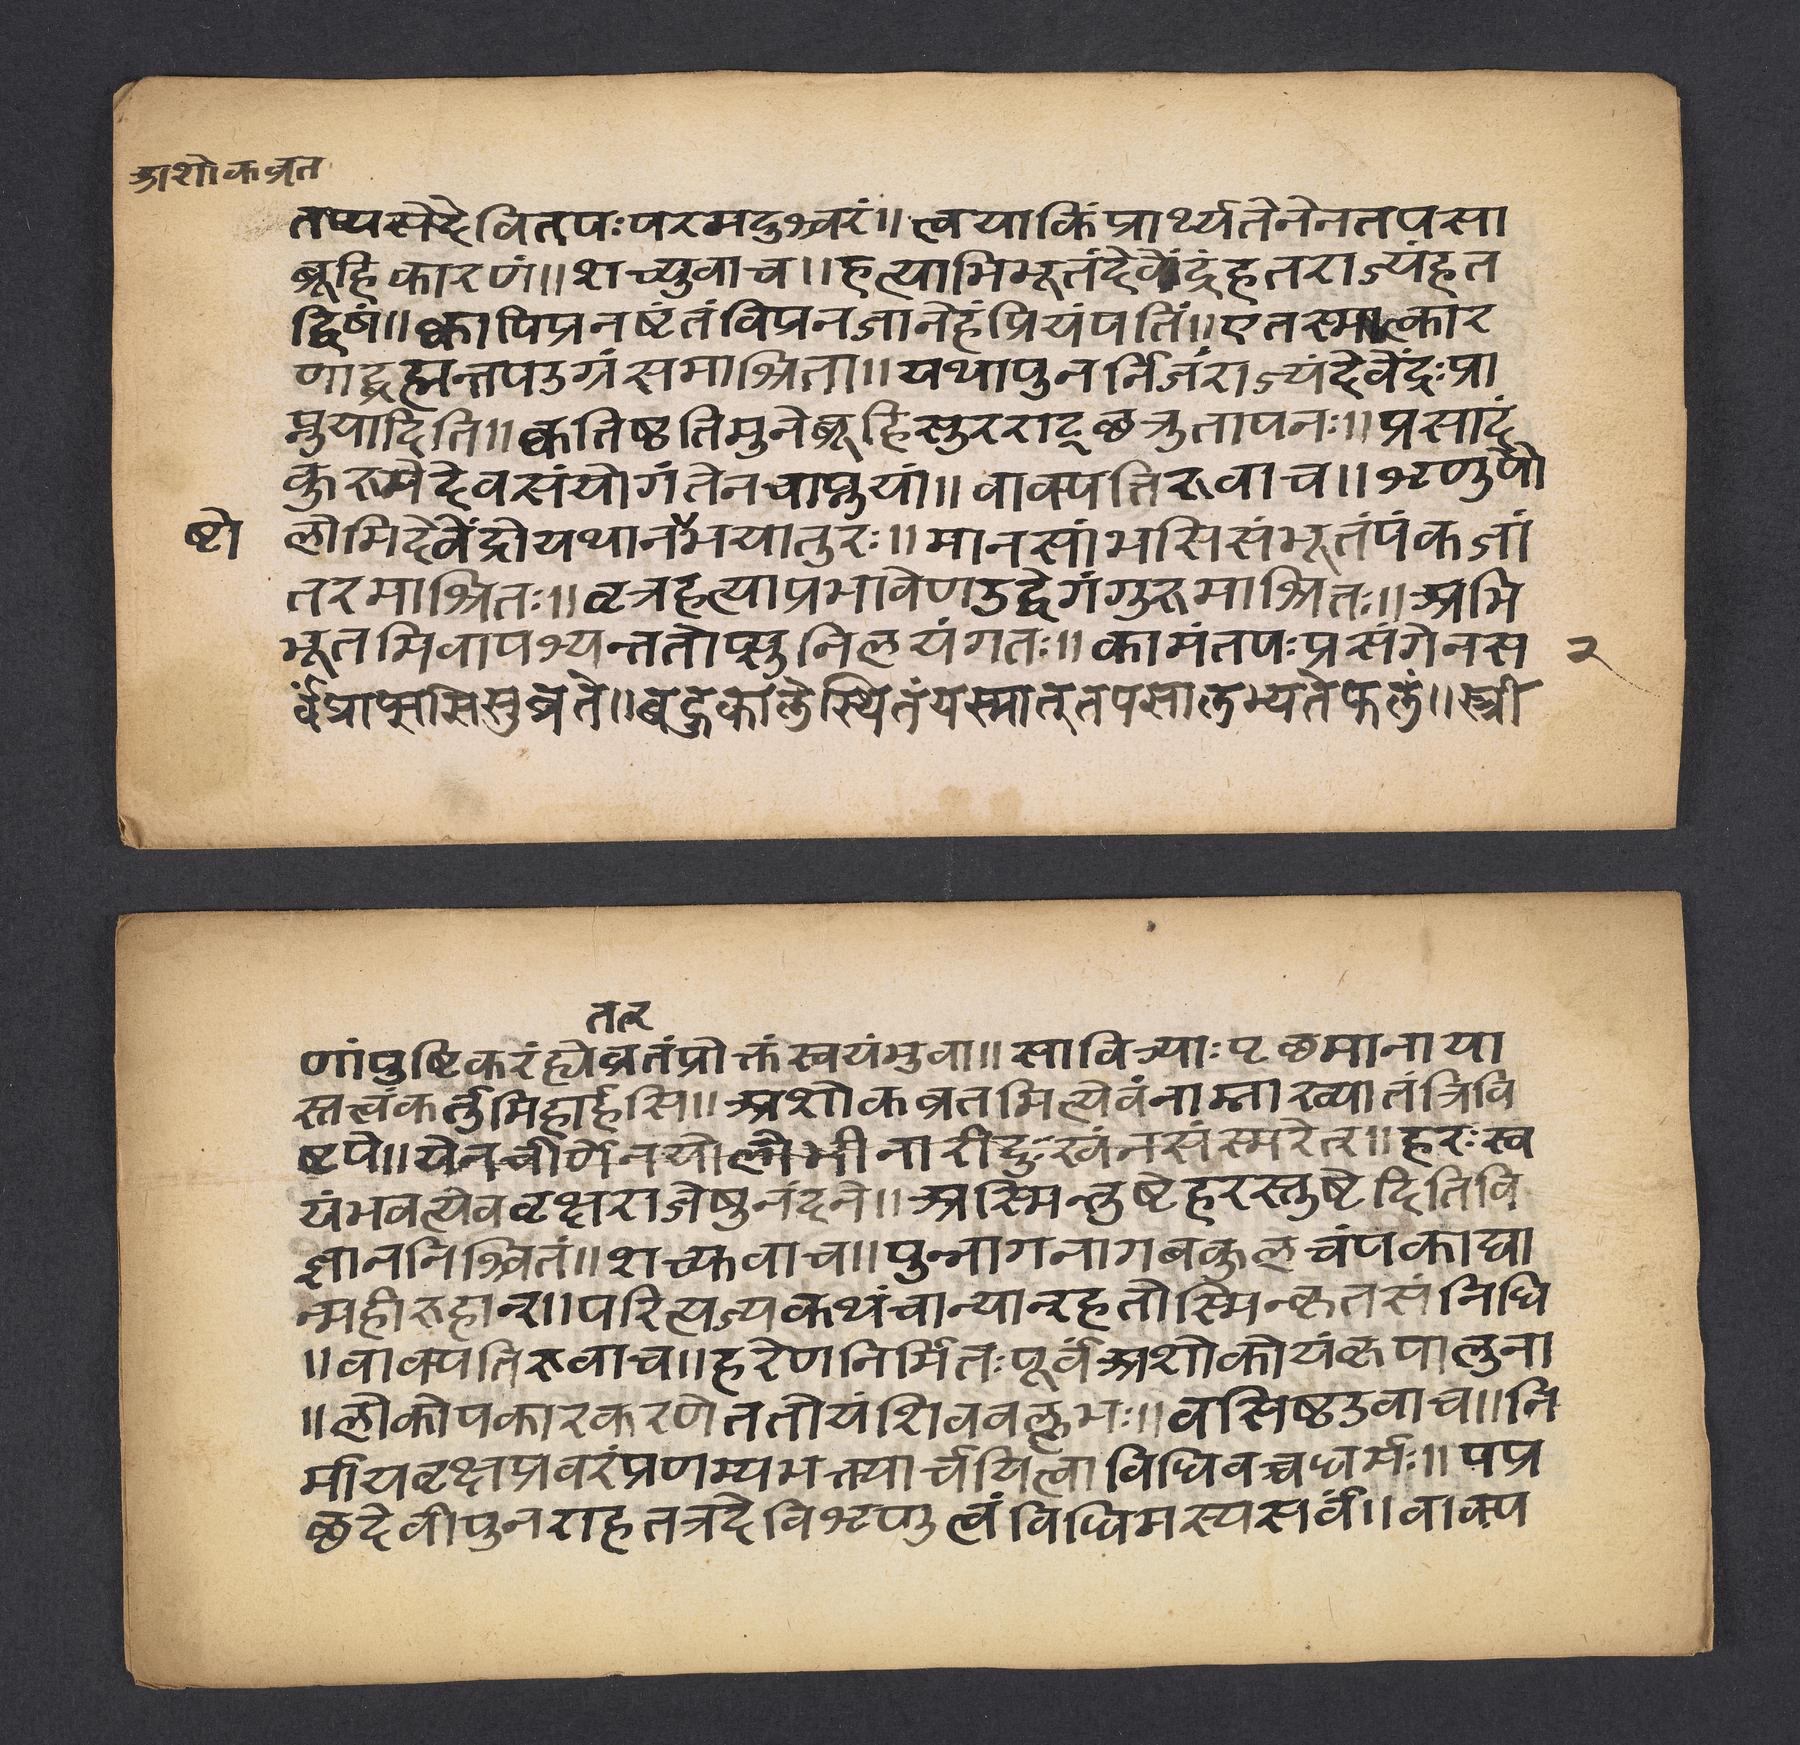 अशोकव्रत
तप्यसेदेवितपःपरमदुश्चरं॥त्वयाकिंप्रार्थ्यतेनेनतपसा
ब्रूहिकारणं॥शच्युवाच॥हत्याभिभूतंदेवेंद्रंहतराज्यंहत
द्विषं॥क्वापिप्रनष्टंतंविप्रनजानेहंप्रियंपतिं॥एतस्मात्कार
णाद्ब्रह्मन्तपउग्रंसमाश्रिता॥यथापुनर्निजंराज्यंदेवेंद्रःप्रा
प्नुयादिति॥क्वतिष्ठतिमुनेब्रूहिसुरराट्छत्रुतापनः॥प्रसादं
कुरुमेदेवसंयोगंतेनचाप्नुयां॥वाक्पतिरुवाच॥शृणुपौ
ष्टो
लोमिदेवेंद्रोयथानभयातुरः॥मानसांभसिसंभूतंपंकजां
तरमाश्रितः॥वृत्रहत्याप्रभावेणउद्वेगंगुरुमाश्रितः॥अभि
भूतमिवापश्यन्ततोप्सुनिलयंगतः॥कामंतपःप्रसंगेनस
२
र्वंप्राप्ससिसुव्रते॥बहुकालेस्थितंयस्मात्तपसालभ्यतेफलं॥स्त्री
तत्र
णांपुष्टिकरंह्येव्रतंप्रोक्तंस्वयंभुवा॥सावित्र्याःपृछमानाया
स्तत्वंकर्तुमिहार्हसि॥अशोकव्रतमित्येवंनाम्नाख्यातंत्रिवि
ष्टपे॥येनचीर्णेनयोलोभीनारीदुःखंनसंस्मरेत्॥हरःस्व
यंभवत्येववृक्षराजेषुनंदने॥अस्मिन्तुष्टेहरस्तुष्टेदितिवि
ज्ञाननिश्चितं॥शच्यवाच॥पुन्नागनागबकुलचंपकाद्या
न्महीरुहान्॥परित्यज्यकथंचान्यान्रहतोस्मिन्कृतसंनिधि
॥वाक्पतिरुवाच॥हरेणनिर्मितःपूर्वंअशोकोयंकृपालुना
॥लोकोपकारकरणेततोयंशिववल्लभः॥वसिष्ठउवाच॥नि
र्मायवृक्षप्रवरंप्रणम्यभक्त्यार्चयित्वाविधिवच्चधर्मः॥पप्र
छदेवीपुनराहतत्रदेविशृणुत्वंविधिमस्यसर्वं॥वाक्प